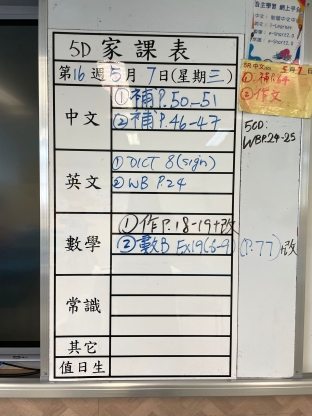 5D 家課表
第16週5月7日(星期三)
中文
①補P.50-51
②補P.46-47
英文
①DICT 8(sign)
②WB P.24
數學
①作P.18-19+改
②數B Ex19(6-9)(P.77)+改
常識
其它
值日生
自主學習 網上平台
5月7日
①補64
②作文
5CD:
WBP.24-25